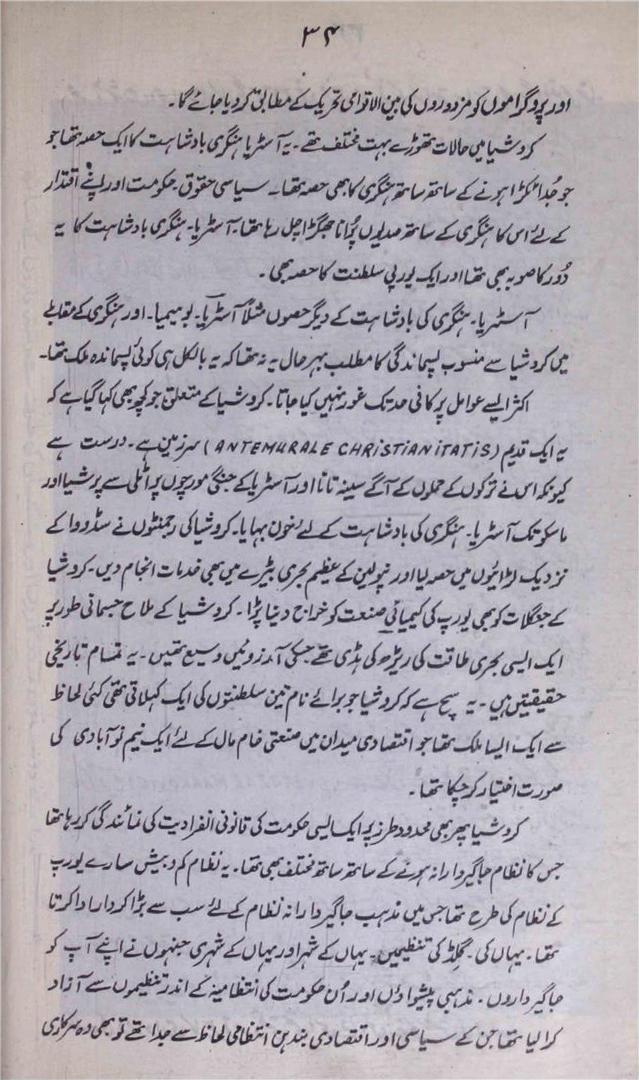 ۳۴
اور پروگراموں کو مزدوروں کی بین الاقوامی تحریک کے مطابق کر دیا جائے گا۔
کروشیا میں حالات تھوڑے بہت مختلف تھے۔ یہ آسٹریا ہنگری بادشاہت کا ایک حصہ تھا جو
جو جُدا ٹکڑا ہونے کے ساتھ ساتھ ہنگری کا بھی حصہ تھا۔ سیاسی حقوق، حکومت اور اپنے اقتدار
کے لئے اس کا ہنگری کے ساتھ صدیوں پُرانا جھگڑا چل رہا تھا۔ آسٹریا۔ ہنگری بادشاہت کا یہ
دُور کا صوبہ بھی تھا اور ایک یورپی سلطنت کا حصہ بھی۔
آسٹریا۔ ہنگری کی بادشاہت کے دیگر حصوں مثلاً آسٹریا۔ بوہیمیا۔ اور ہنگری کے مقابلے
میں کروشیا سے منسوب پسماندگی کا مطلب بہر حال یہ نہ تھا کہ یہ بالکل ہی کوئی پسماندہ ملک تھا۔
اکثر ایسے عوامل پر کافی حد تک غور نہیں کیا جاتا۔ کروشیا کے متعلق جو کچھ بھی کہا گیا ہے کہ
یہ ایک قدیم (ANTEMURALE CHRISTIANITATIS) سرزمین ہے۔ درست ہے
کیونکہ اس نے ترکوں کے حملوں کے آگے سینہ تانا اور آسٹریا کے جنگی مورچوں پر اٹلی سے پرشیا اور
ماسکو تک آسٹریا۔ ہنگری کی بادشاہت کے لئے خون بہایا۔ کروشیا کی رجمنٹوں نے سڈووا کے
نزدیک لڑائیوں میں حصہ لیا اور نپولین کے عظیم بحری بیڑے میں بھی خدمات انجام دیں۔ کروشیا
کے جنگلات کو بھی یورپ کی کیمیائی صنعت کو خراج دینا پڑا۔ کروشیا کے ملاح جسمانی طور پر
ایک ایسی بحری طاقت کی ریڑھ کی ہڈی تھے جسکی آمدزوئیں وسیع تھیں۔ یہ تمام تاریخی
حقیقتیں ہیں۔ یہ سچ ہے کہ کروشیا جو برائے نام تین سلطنتوں کی ایک کہلاتی تھی کئی لحاظ
سے ایک ایسا ملک تھا جو اقتصادی میدان میں صنعتی خام مال کے لئے ایک نیم نو آبادی کی
صورت اختیار کر چکا تھا۔
کروشیا پھر بھی محدود طرز پر ایک ایسی حکومت کی قانونی انفرادیت کی نمائندگی کر رہا تھا
جس کا نظام جاگیردارانہ ہونے کے ساتھ ساتھ مختلف بھی تھا۔ یہ نظام کم و بیش سارے یورپ
کے نظام کی طرح تھا جس میں مذہب جاگیردارانہ نظام کے لئے سب سے بڑا کردار ادا کرتا
تھا۔ یہاں کی۔ گلڈ کی تنظیمیں۔ یہاں کے شہر اور یہاں کے شہری جنہوں نے اپنے آپ کو
جاگیرداروں۔ مذہبی پیشواؤں اور اُن حکومت کی انتظامیہ کے اندر تنظیموں سے آزاد
کرا لیا تھا جن کے سیاسی اور اقتصادی بندہن انتظامی لحاظ سے جدا تھے تو بھی وہ سرکاری